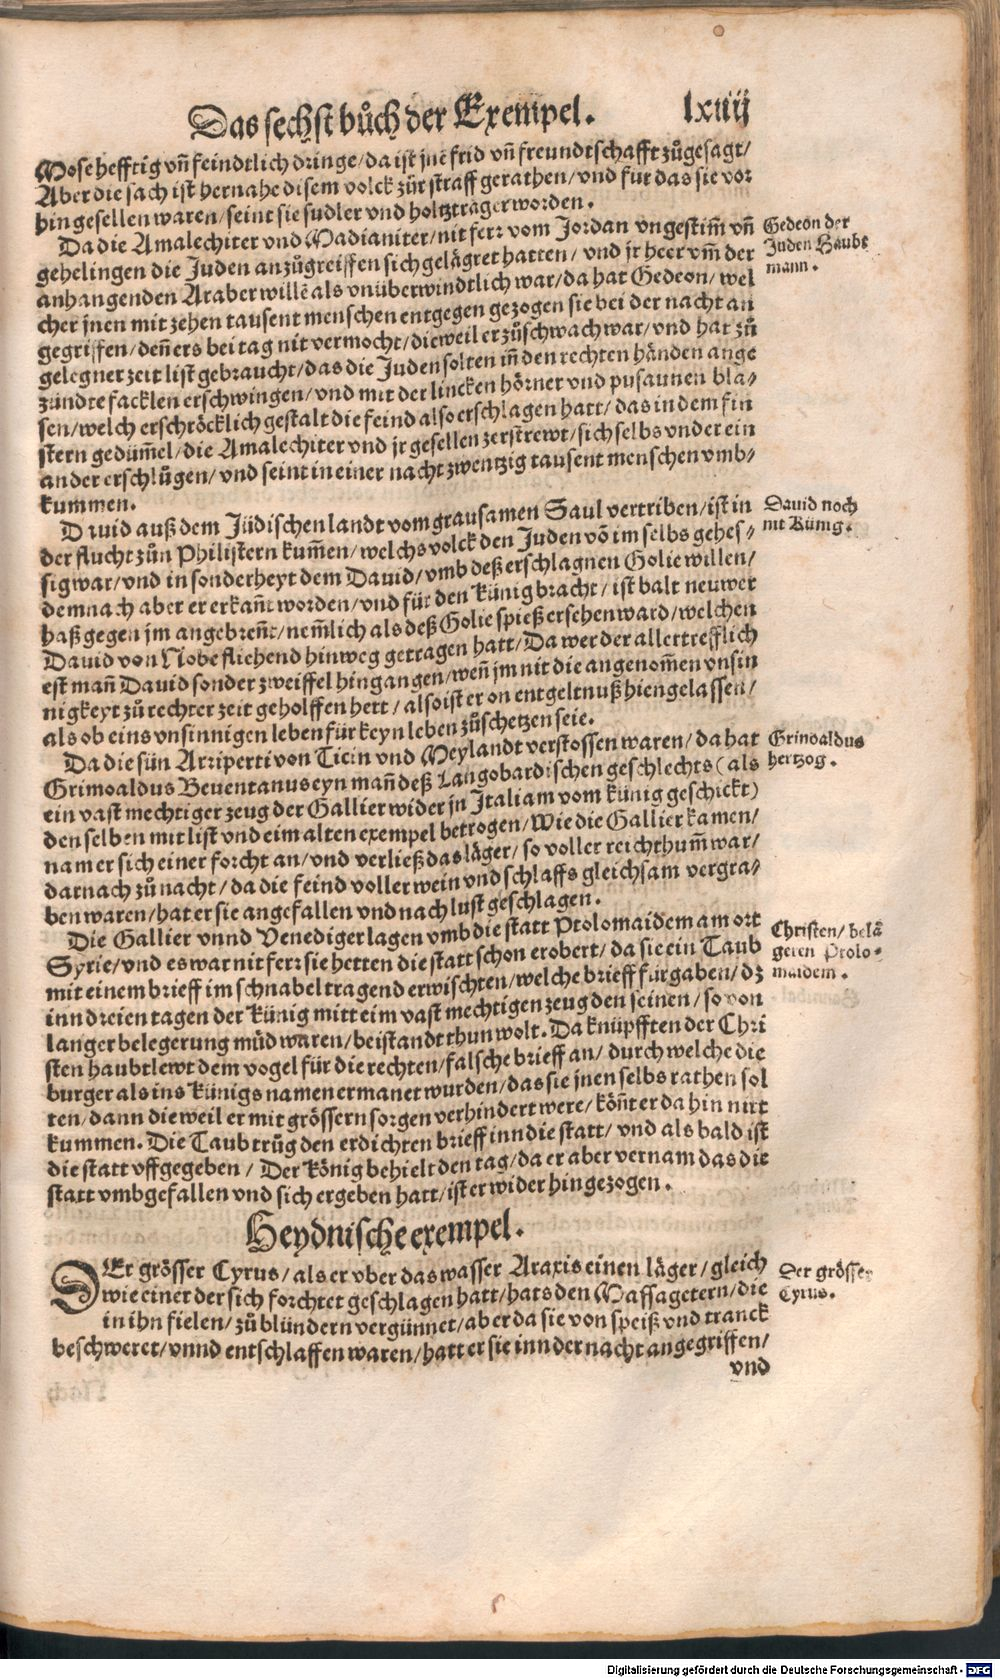 Das sechst bůch der Exempel. lxiiij
Mose hefftig vñ feindtlich dringe/da ist jnē frid vñ freundtschafft zůgesagt/
Aber die sach ist hernahe disem volck zůr straff gerathen/vnd fur das sie vor
hin gesellen waren/seint sie sudler vnd holtztrager worden.
Da die Amalechiter vnd Madianiter/nit ferr vom Jordan vngestim̃ vñ
gehelingen die Juden anzůgreiffen sich gelägret hatten/ vnd jr heer vm̃ der
anhangenden Araber willē als vnüberwindtlich war/da hat Gedeon/wel
cher jnen mit zehen tausent menschen entgegen gezogen sie bei der nacht an
gegriffen/deñ ers bei tag nit vermocht/dieweil er zůschwach war/vnd hat zů
gelegner zeit list gebraucht/das die Juden solten iñ den rechten händen ange
zündte facklen erschwingen/vnd mit der lincken hörner vnd pusaunen bla-
sen/welch erschröcklich gestalt die feind also erschlagen hatt/das in dem fin
stern gedüm̃el/die Amalechiter vnd jr gesellen zerstrewt/sich selbs vnder ein
ander erschlůgen/vnd seint in einer nacht zwentzig tausent menschen vmb-
kummen.
Dauid auß dem Jüdischen landt vom grausamen Saul vertriben/ist in
der flucht zůn Philistern kum̃en/welchs volck den Juden vō im selbs gehes-
sig war/vnd in sonderheyt dem Dauid/vmb deß erschlagnen Golie willen/
demnach aber er erkañt worden/vnd für den künig bracht/ist balt neuwer
haß gegen jm angebreñt/nem̃lich als deß Golie spieß ersehen ward/welchen
Dauid von Nobe fliehend hinweg getragen hatt/Da wer der allertrefflich
est mañ Dauid sonder zweiffel hingangen/weñ jm nit die angenom̃en vnsin
nigkeyt zů rechter zeit geholffen hett/also ist er on entgeltnuß hien gelassen/
als ob eins vnsinnigen leben für keyn leben zůschetzen seie.
Da die sün Ariperti von Ticin vnd Meylandt verstossen waren/da hat
Grimoaldus Beuentanus eyn mañ deß Langobardischen geschlechts(als
ein vast mechtiger zeug der Gallier wider jn Italiam vom künig geschickt)
den selben mit list vnd eim alten exempel betrogen/Wie die Gallier kamen/
nam er sich einer forcht an/vnd verließ das läger/so voller reichthum̃ war/
darnach zů nacht/da die feind voller wein vnd schlaffs gleichsam vergra-
ben waren/hat er sie angefallen vnd nach lust geschlagen.
Die Gallier vnnd Venediger lagen vmb die statt Ptolomaidem am ort
Syrie/vnd es war nit ferr sie hetten die statt schon erobert/da sie ein Taub
mit einem brieff im schnabel tragend erwischten/welche brieff fürgaben/dz
inn dreien tagen der künig mitt eim vast mechtigen zeug den seinen/so von
langer belegerung müd waren/beistandt thun wolt. Da knüpfften der Chri
sten haubtlewt dem vogel für die rechten/falsche brieff an/durch welche die
burger als ins künigs namen ermanet wurden/das sie jnen selbs rathen sol
ten/dann dieweil er mit grössern sorgen verhindert were/köñt er da hin nitt
kummen. Die Taub trůg den erdichten brieff inn die statt/vnd als bald ist
die statt vffgegeben/ Der könig behielt den tag/da er aber vernam das die
statt vmbgefallen vnd sich ergeben hatt/ist er wider hingezogen.
Heydnische exempel.
DEr grösser Cyrus/als er vber das wasser Araxis einen läger/gleich
wie einer der sich forchtet geschlagen hatt/hats den Massagetern/die
in ihn fielen/zů blündern vergünnet/aber da sie von speiß vnd tranck
beschweret/vnnd entschlaffen waren/hatt er sie inn der nacht angegriffen/
vnd
Gedeon der
Juden Haubt
mann.
Dauid noch
nit Künig.
Grinoaldus
hertzog.
Christen/ belä
geren Ptolo-
maidem.
Der grösser
Cyrus.
Digitalisierung gefördert durch die Deutsche Forschungsgemeinschaft - DFG